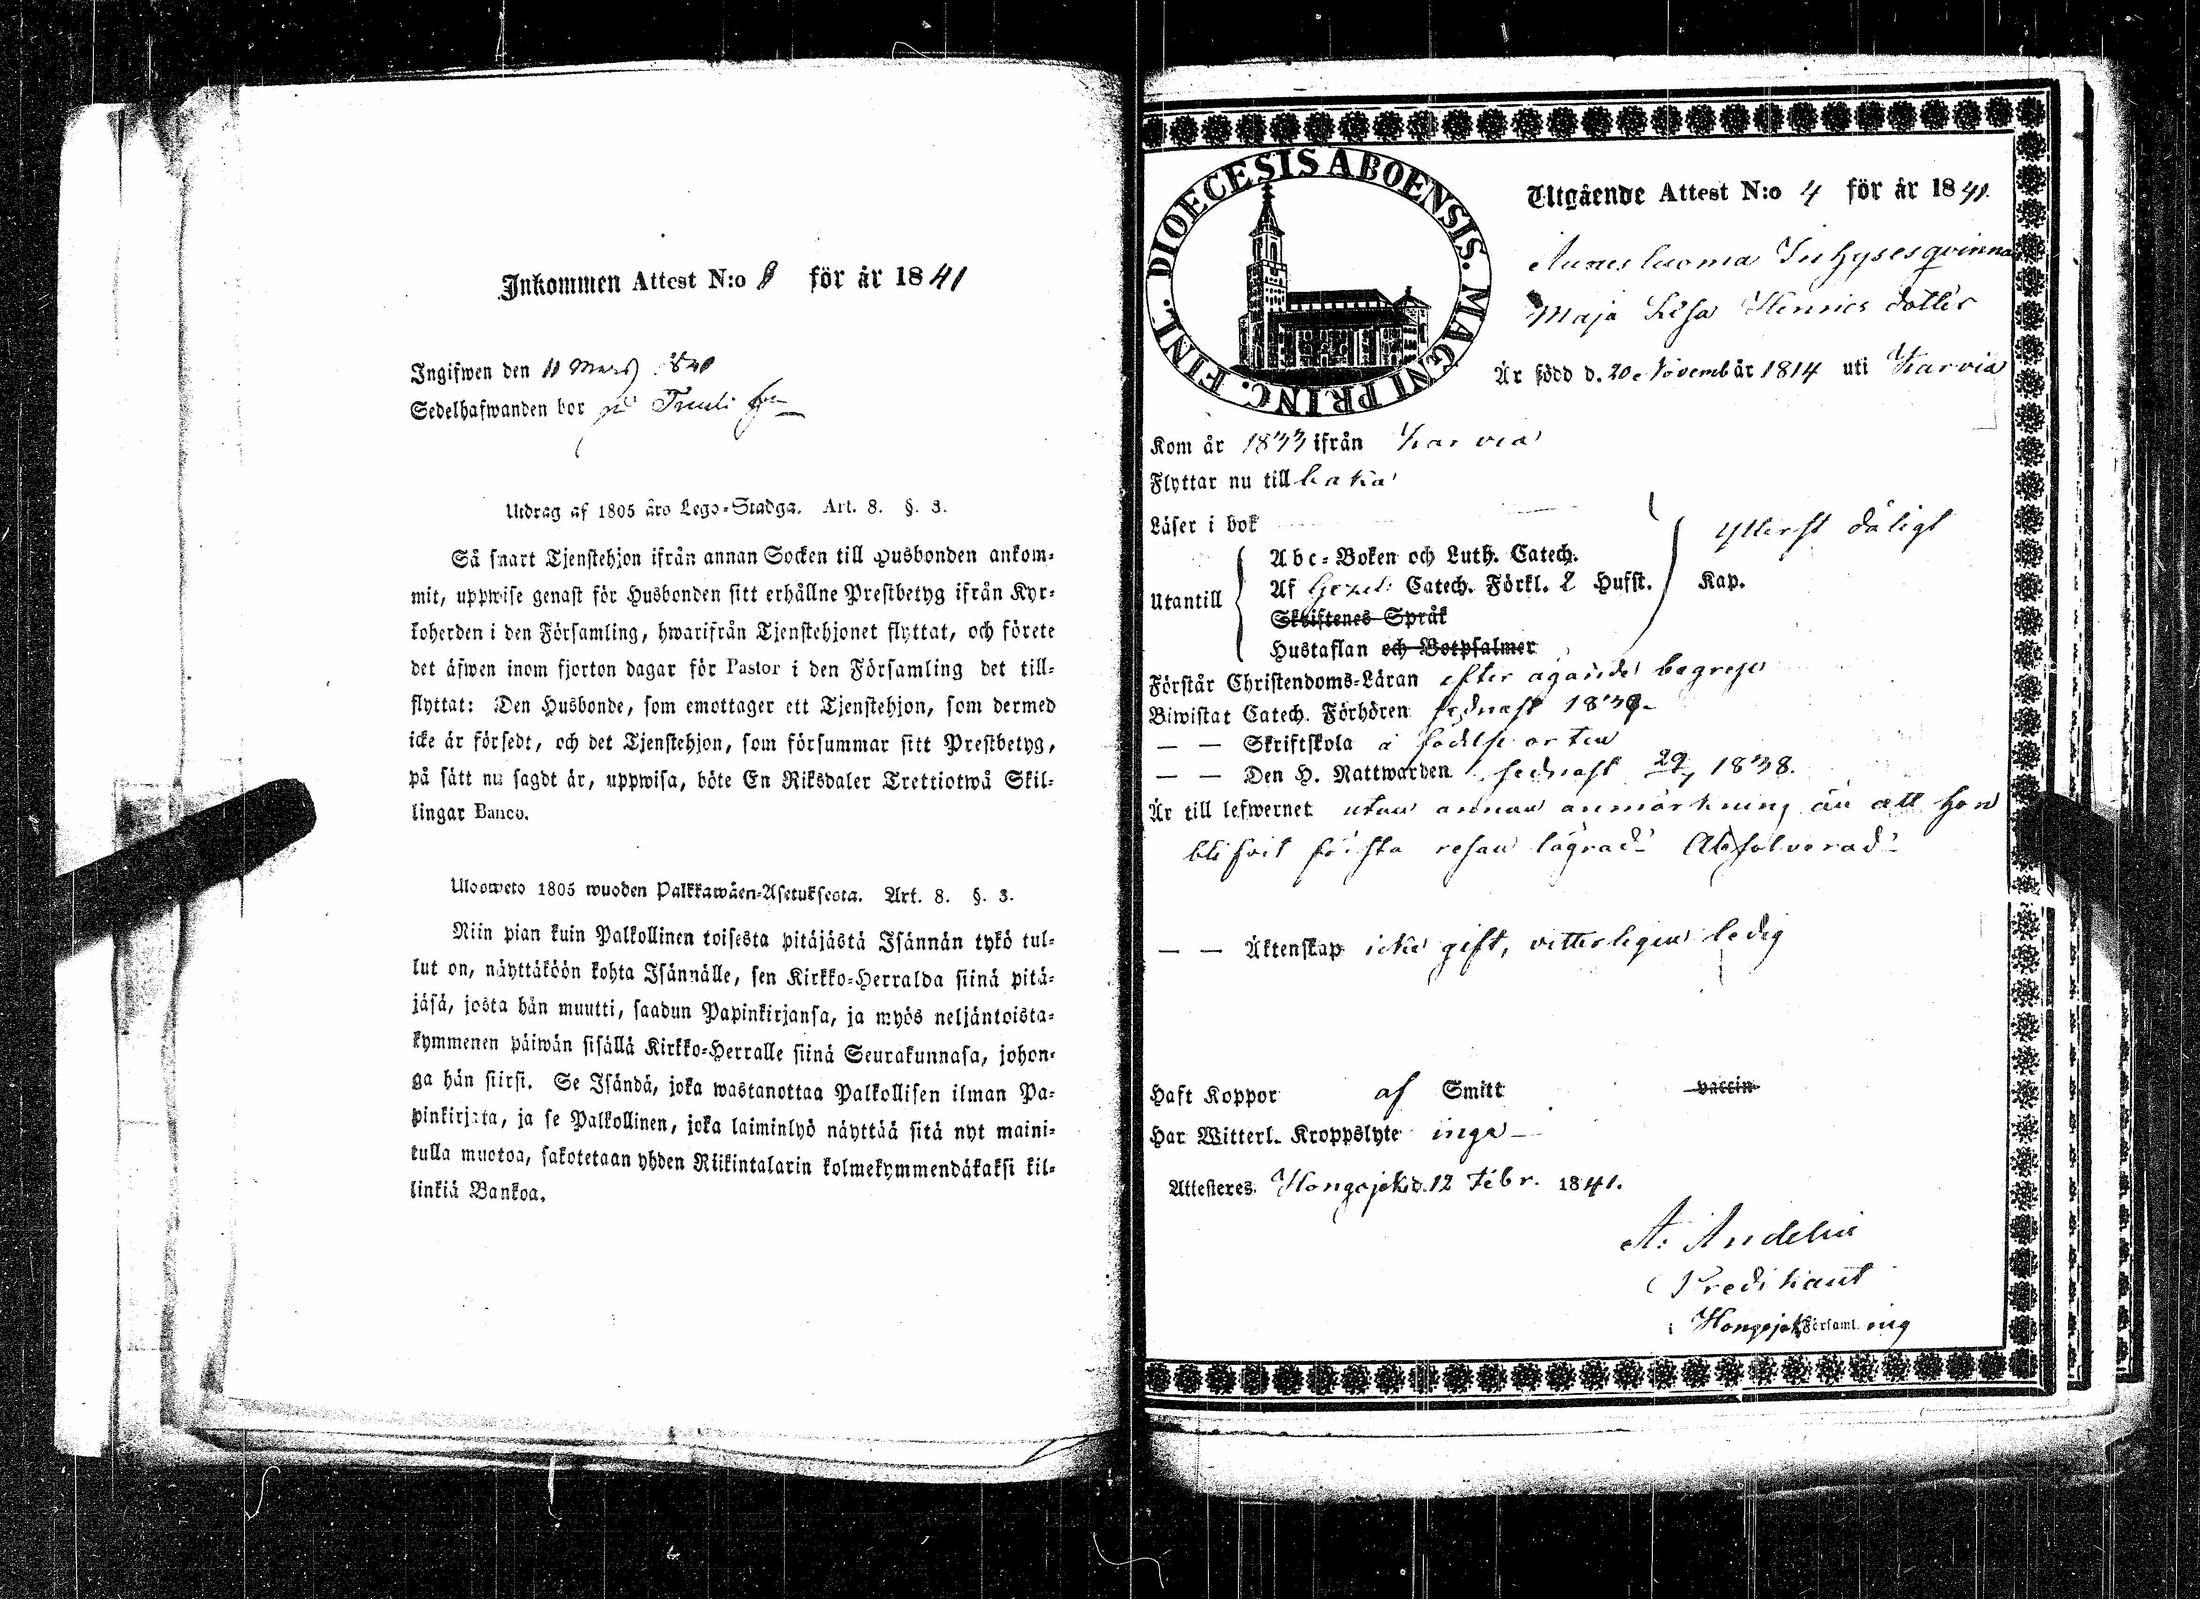 Inkommen Attest N:o 8 för år 1841
Ingifwen den 11 Mars 1841
Sedelhafwanden bor på
Utdrag af 1805 års Lego-Stadga. Art. 8. §. 3.
Så snart Tjenstehjon ifrån annan Socken till Husbonden ankom-
mit, uppwise genast för Husbonden sitt erhållne Prestbetyg ifrån Kyr-
koherden i den Församling, hwarifrån Tjenstehjonet flyttat, och förete
det äfwen inom fjorton dagar för Pastor i den Församling det till-
flyttat: Den Husbonde, som emottager ett Tjenstehjon, som dermed
icke är försedt, och det Tjenstehjon, som försummar sitt Prestbetyg,
på sätt nu sagdt är, uppwisa, böte En Riksdaler Trettiotwå Skil-
lingar Banco.
Ulosweto 1805 wuoden Palkkawäen-Asetuksesta. Art. 8. §. 3.
Niin pian kuin Palkollinen toisesta pitäjästä Isännän tykö tul-
lut on, näyttäköön kohta Isännälle, sen Kirkko-Herralda siinä pitä-
jäsä, josta hän muutti, saadun Papinkirjansa, ja myös neljäntoista-
kymmenen päiwän sisällä Kirkko-Herralle siinä Seurakunnasa, johon-
ga hän siirsi. Se Isändä, joka wastanottaa Palkollisen ilman Pa-
pinkirjata, ja se Palkollinen, joka laiminlyö näyttää sitä nyt maini-
tulla muotoa, sakotetaan yhden Riikintalarin kolmekymmendäkaksi kil-
linkiä Bankoa.
DIOECESIS ABOENSIS. MAGNI PRINC. FINL.
Utgående Attest N:o 4 för år 1841.
Aunesluoma Inhysesqvinna
Maja Lisa Henrics dotter
Är född d. 20 November 1814 uti Karvia
Kom år 1833 ifrån Karvia
Flyttar nu tillbaka
Läser i bok
ytterst dåligt
Utantill
Abc-Boken och Luth. Catech.
Af Gezel: Catech. Förkl. 2 Hufst. Kap.
Skriftenes Språk
Hustaflan och Botpsalmer
Förstår Christendoms-Läran efter ägande begrepp
Biwistat Catech. Förhören sednast 1839.
— — Skriftskola å födelse orten
— — Den H. Nattwarden sednast 29/7 1838.
Är till lefwernet utan annan anmärkning än att hon
blifvit första resan lägrad. Absolverad.
— — Äktenskap icke gift, vitterligen ledig
Haft Koppor af Smitt vaccin
Har Witterl. Kroppslyte inga
Attesteres. Hongojoki d. 12 Febr. 1841.
A: Andelin
Predikant
i Hongojoki Församling